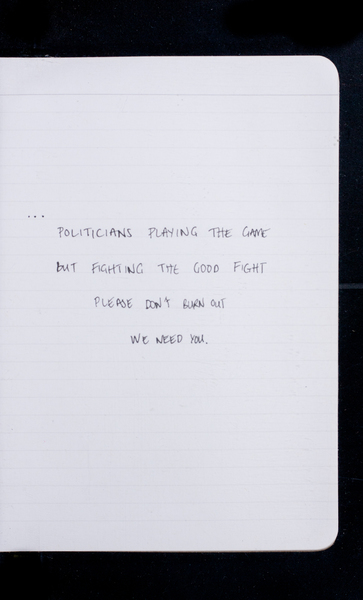 ...
POLITICIANS PLAYING THE GAME
BUT FIGHTING THE GOOD FIGHT
PLEASE DON'T BURN OUT
WE NEED YOU.